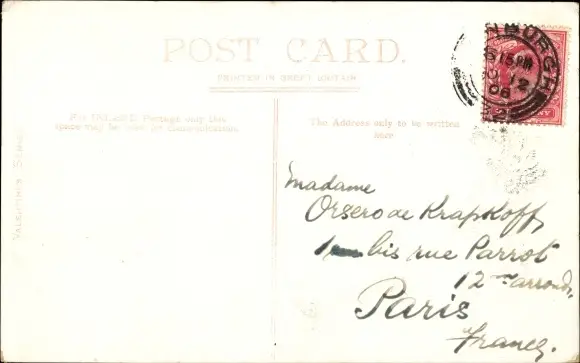 POST CARD.
PRINTED IN GREAT BRITAIN
For INLAND Postage only this
space may be used for Communication.
The Address only to be written
here
VALENTINES SERIES
NBURGH
15 PM
12
06
Madame
Orsero de Krapkoff,
1 bis rue Parrot
12me arrondt.
Paris
France.